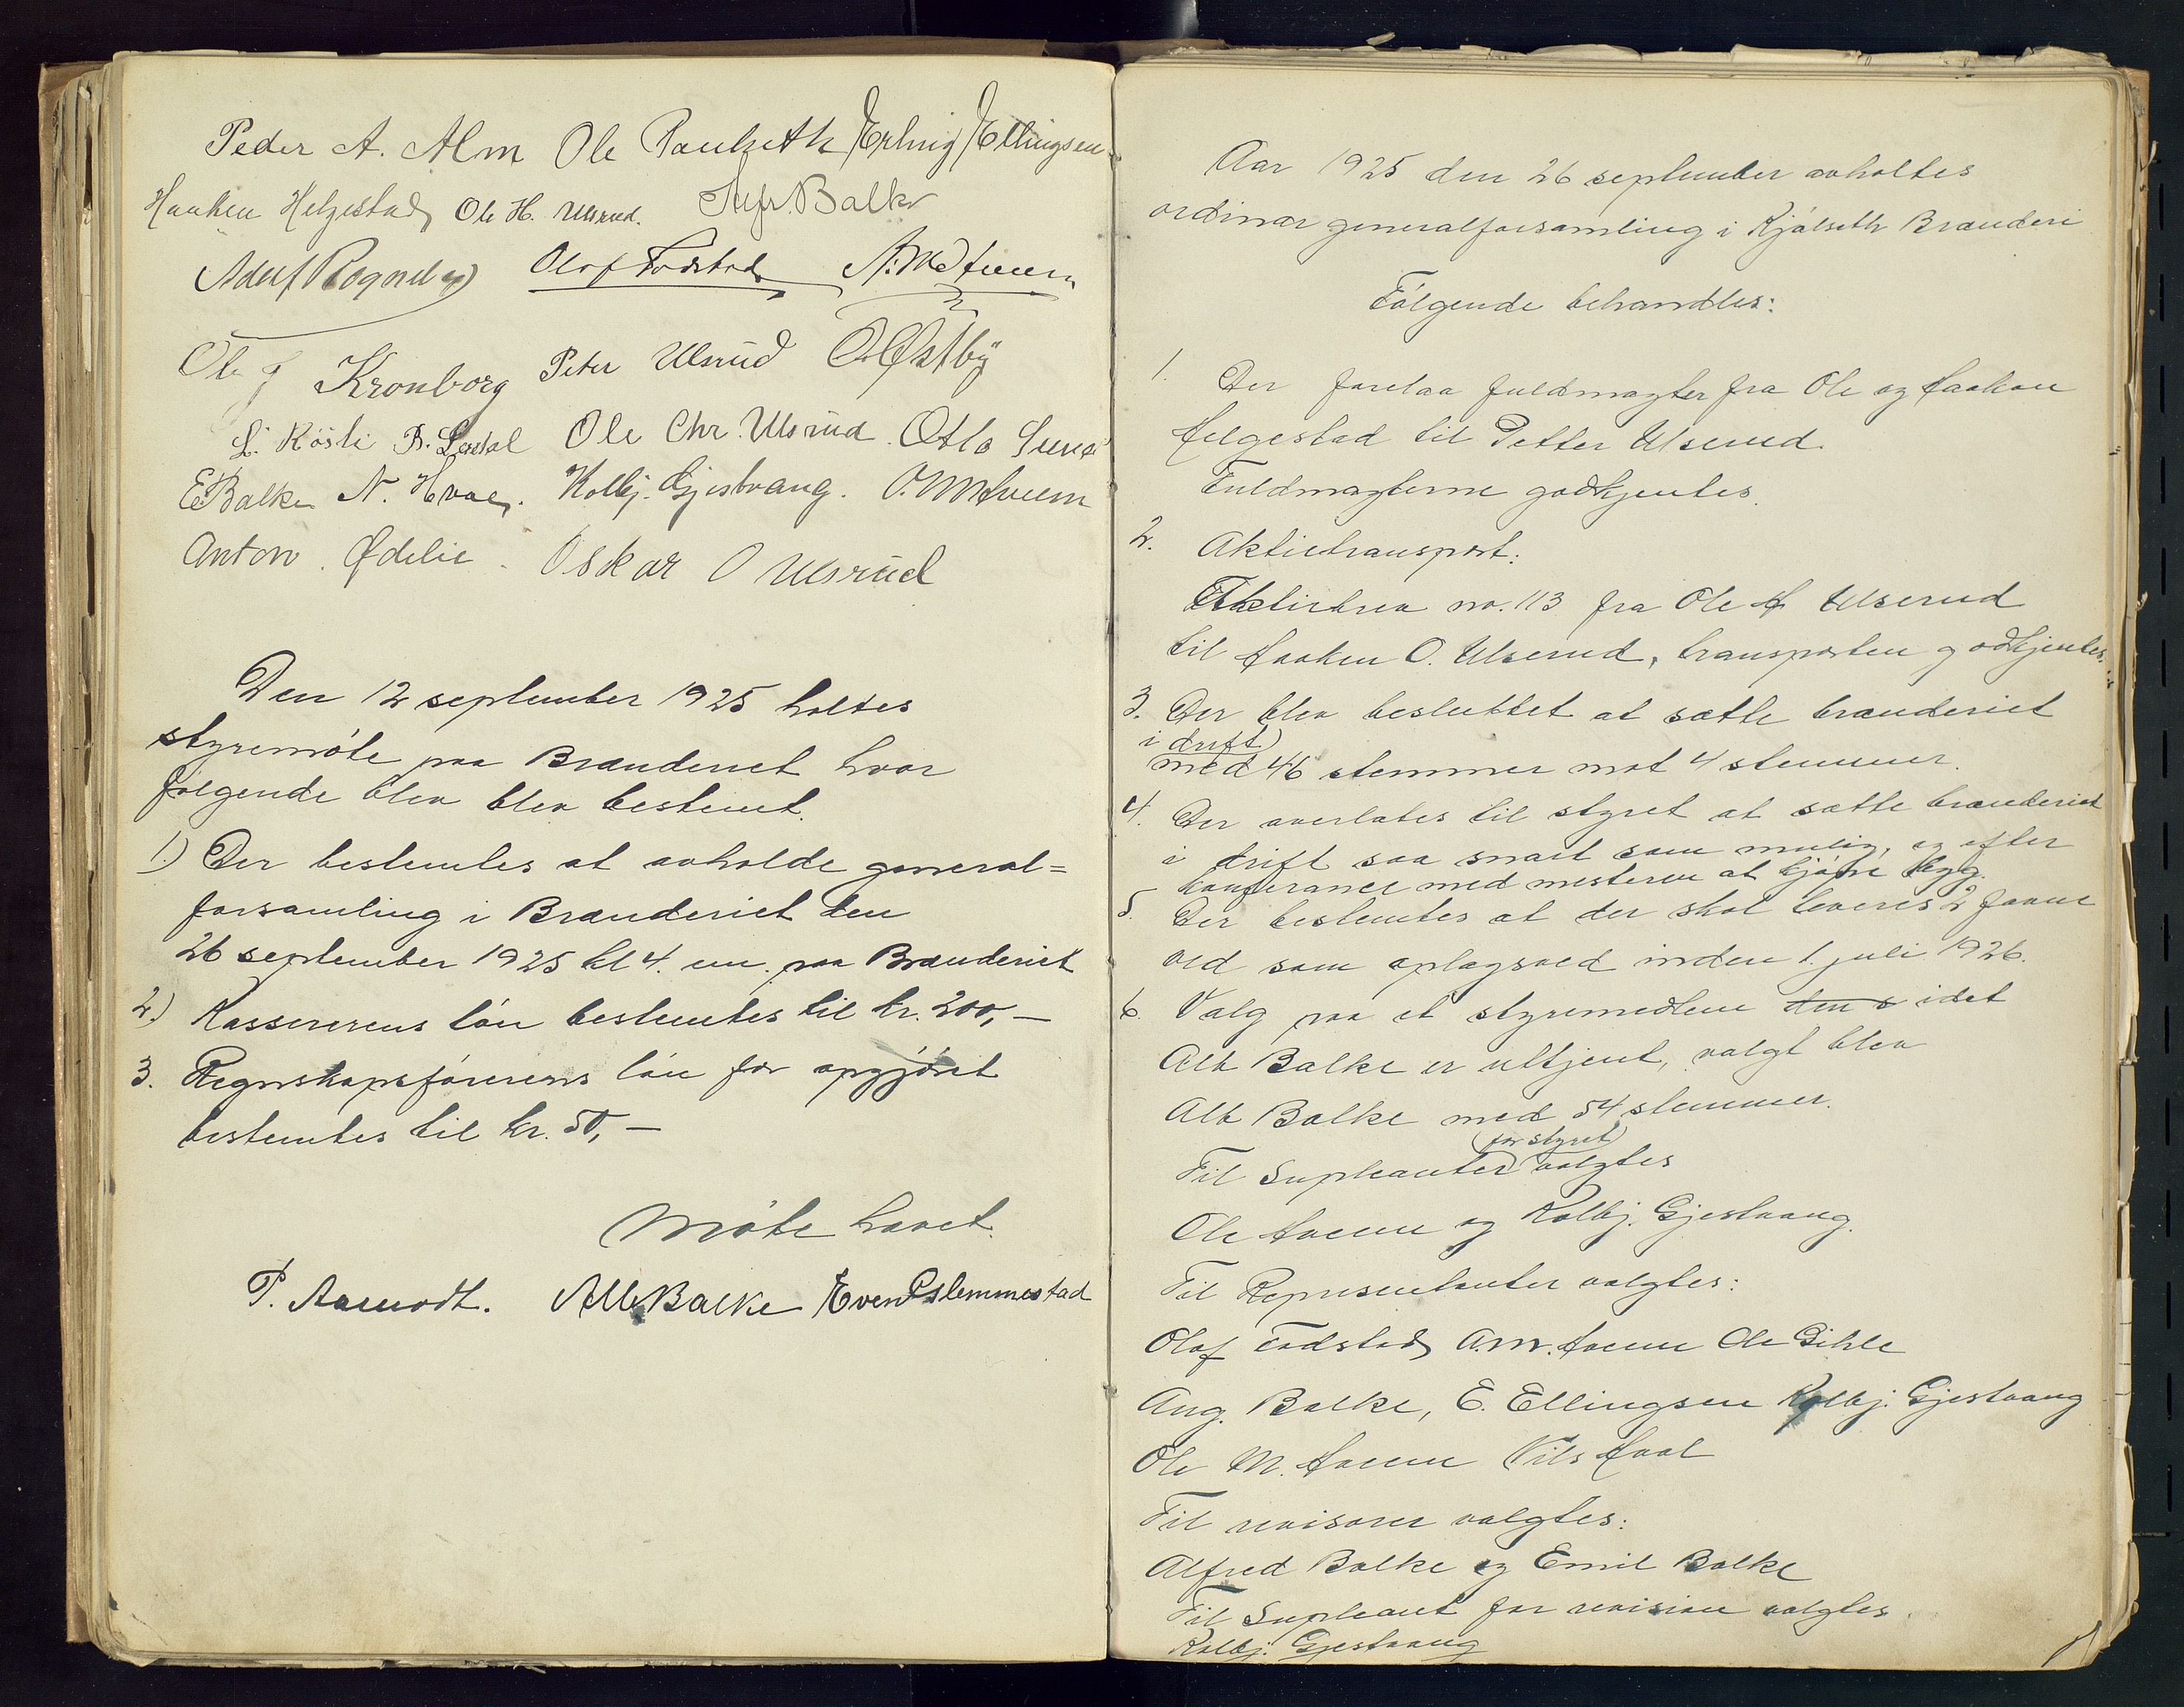 Peder A. Alm Ole Paulseth Erling Ellingsen
Haaken Helgestad Ole H. Ulsrud. Alfr. Balke
Adolf Rognely Olaf Fodstad A. M. Hveem
Ole J Kronborg Peter Ulsrud O Østby
L. Kösli Ole Chr. Ulsrud. Otto
E Balke N. Hval. Kolbj. Gjestvang. O. M Hveem
Anton. Ødelie. Oskar O Ulsrud
Den 12 september 1925 holtes
styremöte paa Brænderiet hvor
følgende blev blev bestemt.
1.) Der bestemtes at avholde general=
forsamling i Brænderiet den
26 september 1925 kl 4. em. paa Brænderiet
2.) Kassererens lön bestemtes til kr. 200,—
3. Regnskapsförerens lön for opgjöret
bestemtes til kr. 50,—
Möte hævet.
P. Aamodt. Alb Balke Even Slemmestad
Aar 1925 den 26 september avholtes
ordinær generalforsamling i Kjölseth Brænderi
Fölgende behandles:
1. Der forelaa fuldmagter fra Ole og Haakon
Helgestad til Petter Ulserud.
Fuldmagterne godkjentes.
2. Aktietransport:
Aktiebrev no. 113 fra Ole H Ulserud
til Haaken O. Ulserud, transporten godkjentes.
3. Der blev besluttet at sætte brænderiet
i drift
med 46 stemmer mot 4 stemmer.
4. Der overlates til styret at sætte brænderiet
i drift saa snart som mulig, og efter
konferance med mesteren at kjöpe bygg.
5. Der bestemtes at der skal leveres 2 favne
ved som oplagsved inden 1. juli 1926.
6. Valg paa et styremedlem den s idet
Alb Balke er uttjent, valgt blev
Alb Balke med 54 stemmer.
(for styret)
Til Supleanter valgtes
Ole Hveem og Kolbj. Gjestvang.
Til Representanter valgtes:
Olaf Fodstad, A.M. Hveem Ole Gihle
Aug. Balke, E. Ellingsen Kolbj. Gjestvang
Ole M. Hveem Nils Hval
Til revisorer valgtes:
Alfred Balke og Emil Balke
Til Supleant for revision valgtes.
Kolbj. Gjestvang